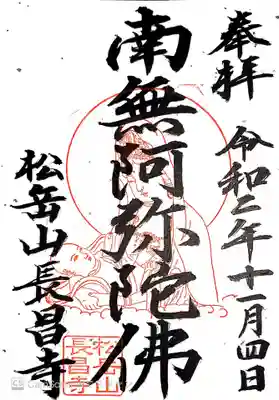 奉拝 令和二年十一月四日
南無阿弥陀佛
松岳山長昌寺
松岳山
長昌寺
CS